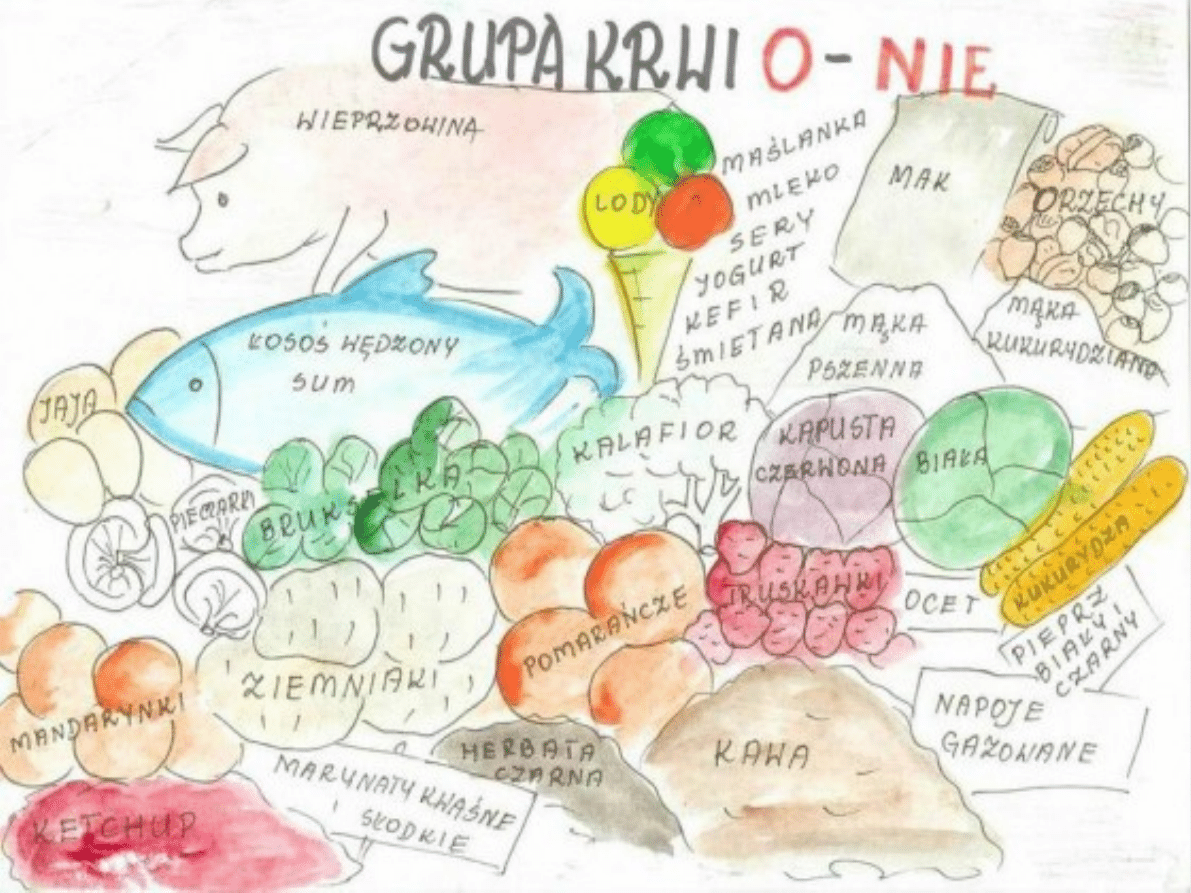 GRUPA KRWI O - NIE
WIEPRZOWINA
LODY
MAŚLANKA
MLEKO
SERY
YOGURT
KEFIR
ŚMIETANA
MAK
ORZECHY
MĄKA
PSZENNA
MĄKA
KUKURYDZIANA
ŁOSOŚ WĘDZONY
SUM
JAJA
PIECZARKI
BRUKSELKA
KALAFIOR
KAPUSTA
CZERWONA
BIAŁA
KUKURYDZA
TRUSKAWKI
OCET
PIEPRZ
BIAŁY I
CZARNY
POMARAŃCZE
ZIEMNIAKI
MANDARYNKI
NAPOJE
GAZOWANE
HERBATA
CZARNA
KAWA
MARYNATY KWAŚNE
SŁODKIE
KETCHUP